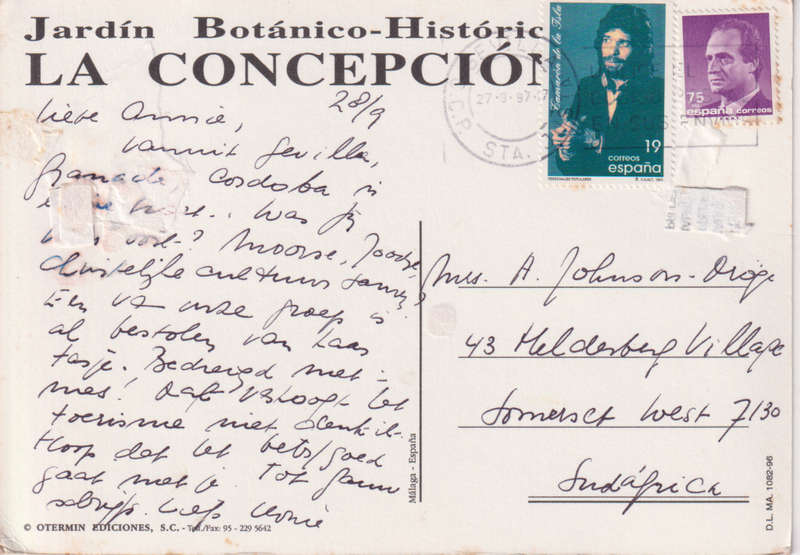 Jardín Botánico-Históric
LA CONCEPCIÓN
28/9
Lieve Annie,
Vanuit Sevilla,
Granada, Cordoba
Was jij
Moorse, Joodse,
christelijke cultuur samen
Een va onze groep is
al bestolen van haar
tasje. Bedreigd met
mes! Dat verhoogt het
toerisme niet
Hoop dat het goed
gaat met je. Tot
Liefs
© OTERMIN EDICIONES, S.C. - Telf./Fax: 95 - 229 5642
Málaga - España
SEVILLA
27-9-97
STA.
Camarón de la Isla
19
correos
españa
PERSONAJES POPULARES
75
españa correos
Mrs. A. Johnson-Droge
43 Helderberg Village
Somerset West 7130
Sudáfrica
D.L. MA. 1082-96